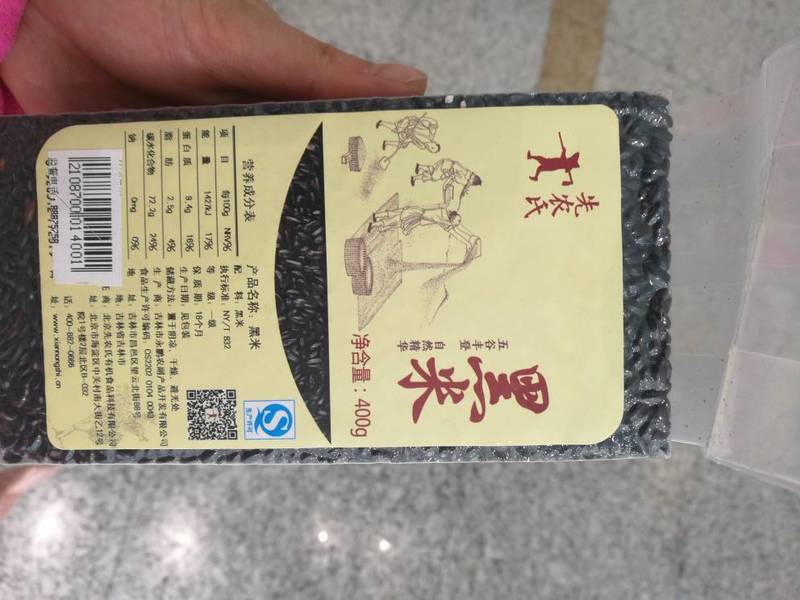 先农氏
黑米
五谷丰登
自然精华
净含量：400g
营养成分表
项 目 每100g NRV%
能 量 1427kJ 17%
蛋白质 9.4g 16%
脂 肪 2.5g 4%
碳水化合物 72.2g 24%
钠 0mg 0%
产品名称：黑米
配 料：黑米
执行标准：NY/T 832
等 级：一级
保 质 期：18个月
生产日期：见包装
储藏方法：置于阴凉、干燥、避光处
生 产 商：吉林市永鹏农副产品开发有限公司
地 址：吉林市昌邑区望云北街88号
食品生产许可编码：QS2202 0104 0043
地：吉林省吉林市
商：北京先农氏有机食品科技有限公司
址：北京市海淀区中关村南大街乙12号
院1号楼2层北区B-032
话：400-882-0686
址：www.xiannongshi.cn
生产许可
2108700014001
监督电话:88875258